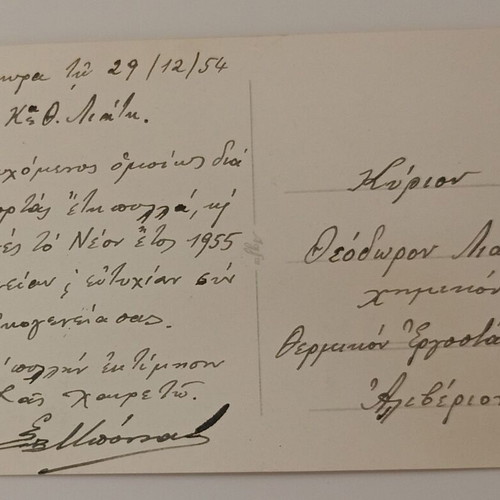 τῇ 29/12/54
Κε Θ. Λιάτη.
χόμενος ὁμοίως διά
ορτάς ἔτη πολλά, κι
ές τό Νέον ἔτος 1955
είαν & εὐτυχίαν σύν
κογενείᾳ σας.
πολλήν ἐκτίμησιν
Σᾶς χαιρετῶ.
Κύριον
Θεόδωρον Λιά
χημικόν
Θερμικόν Ἐργοστά
Ἀλιβέριον